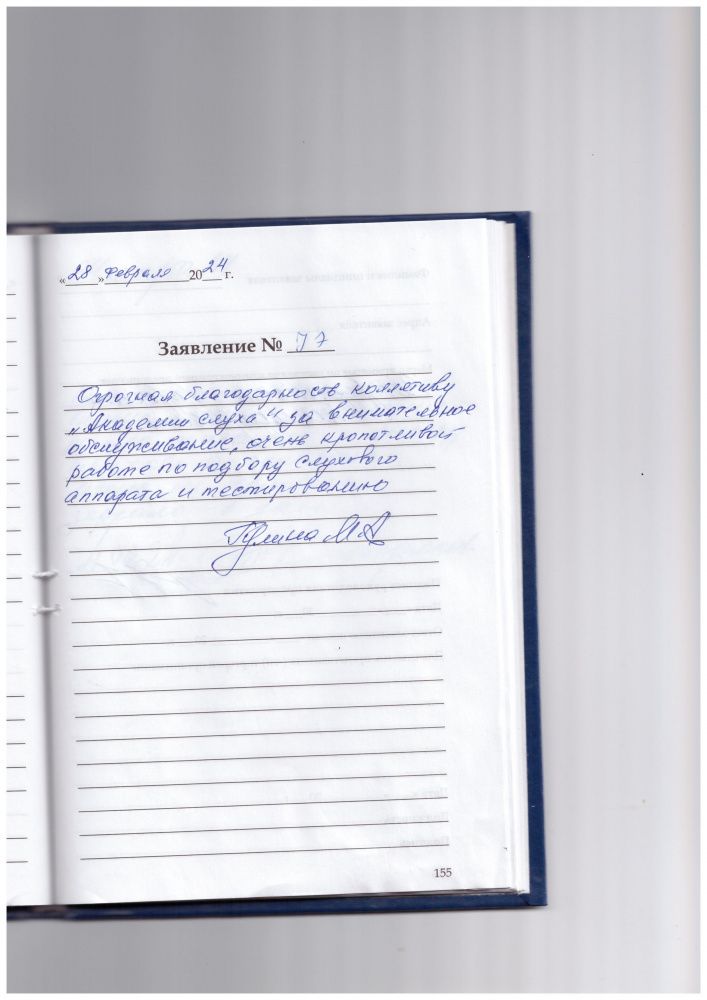 «28» февраля 2024 г.
Заявление № 77
Огромная благодарность коллективу
"Академии слуха" за внимательное
обслуживание, очень кропотливой
работе по подбору слухового
аппарата и тестированию
М А
155